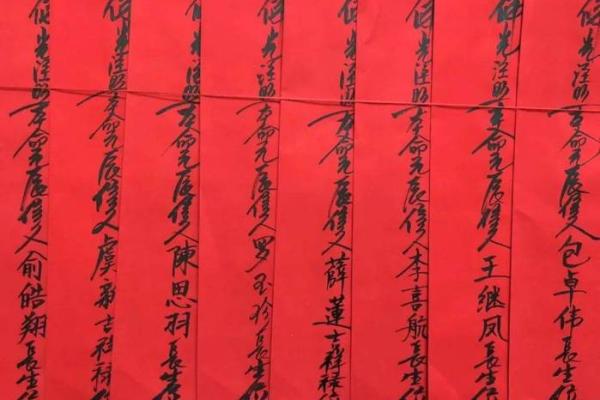 佛光注照本命元辰信人包卓伟長生位
佛光注照本命元辰信人王继凤長生位
佛光注照本命元辰信人李喜航長生位
佛光注照本命元辰信人薛蓮吉祥禄位
佛光注照本命元辰信人罗玉珍長生位
佛光注照本命元辰信人陳思羽長生位
佛光注照本命元辰信人虞弟吉祥禄
佛光注照本命元辰信人俞皓翔長生位